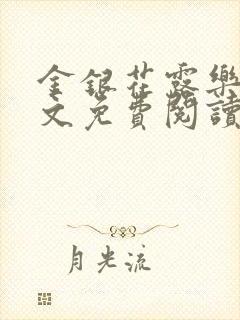 金銀花露樂
文免費閱讀
月光流